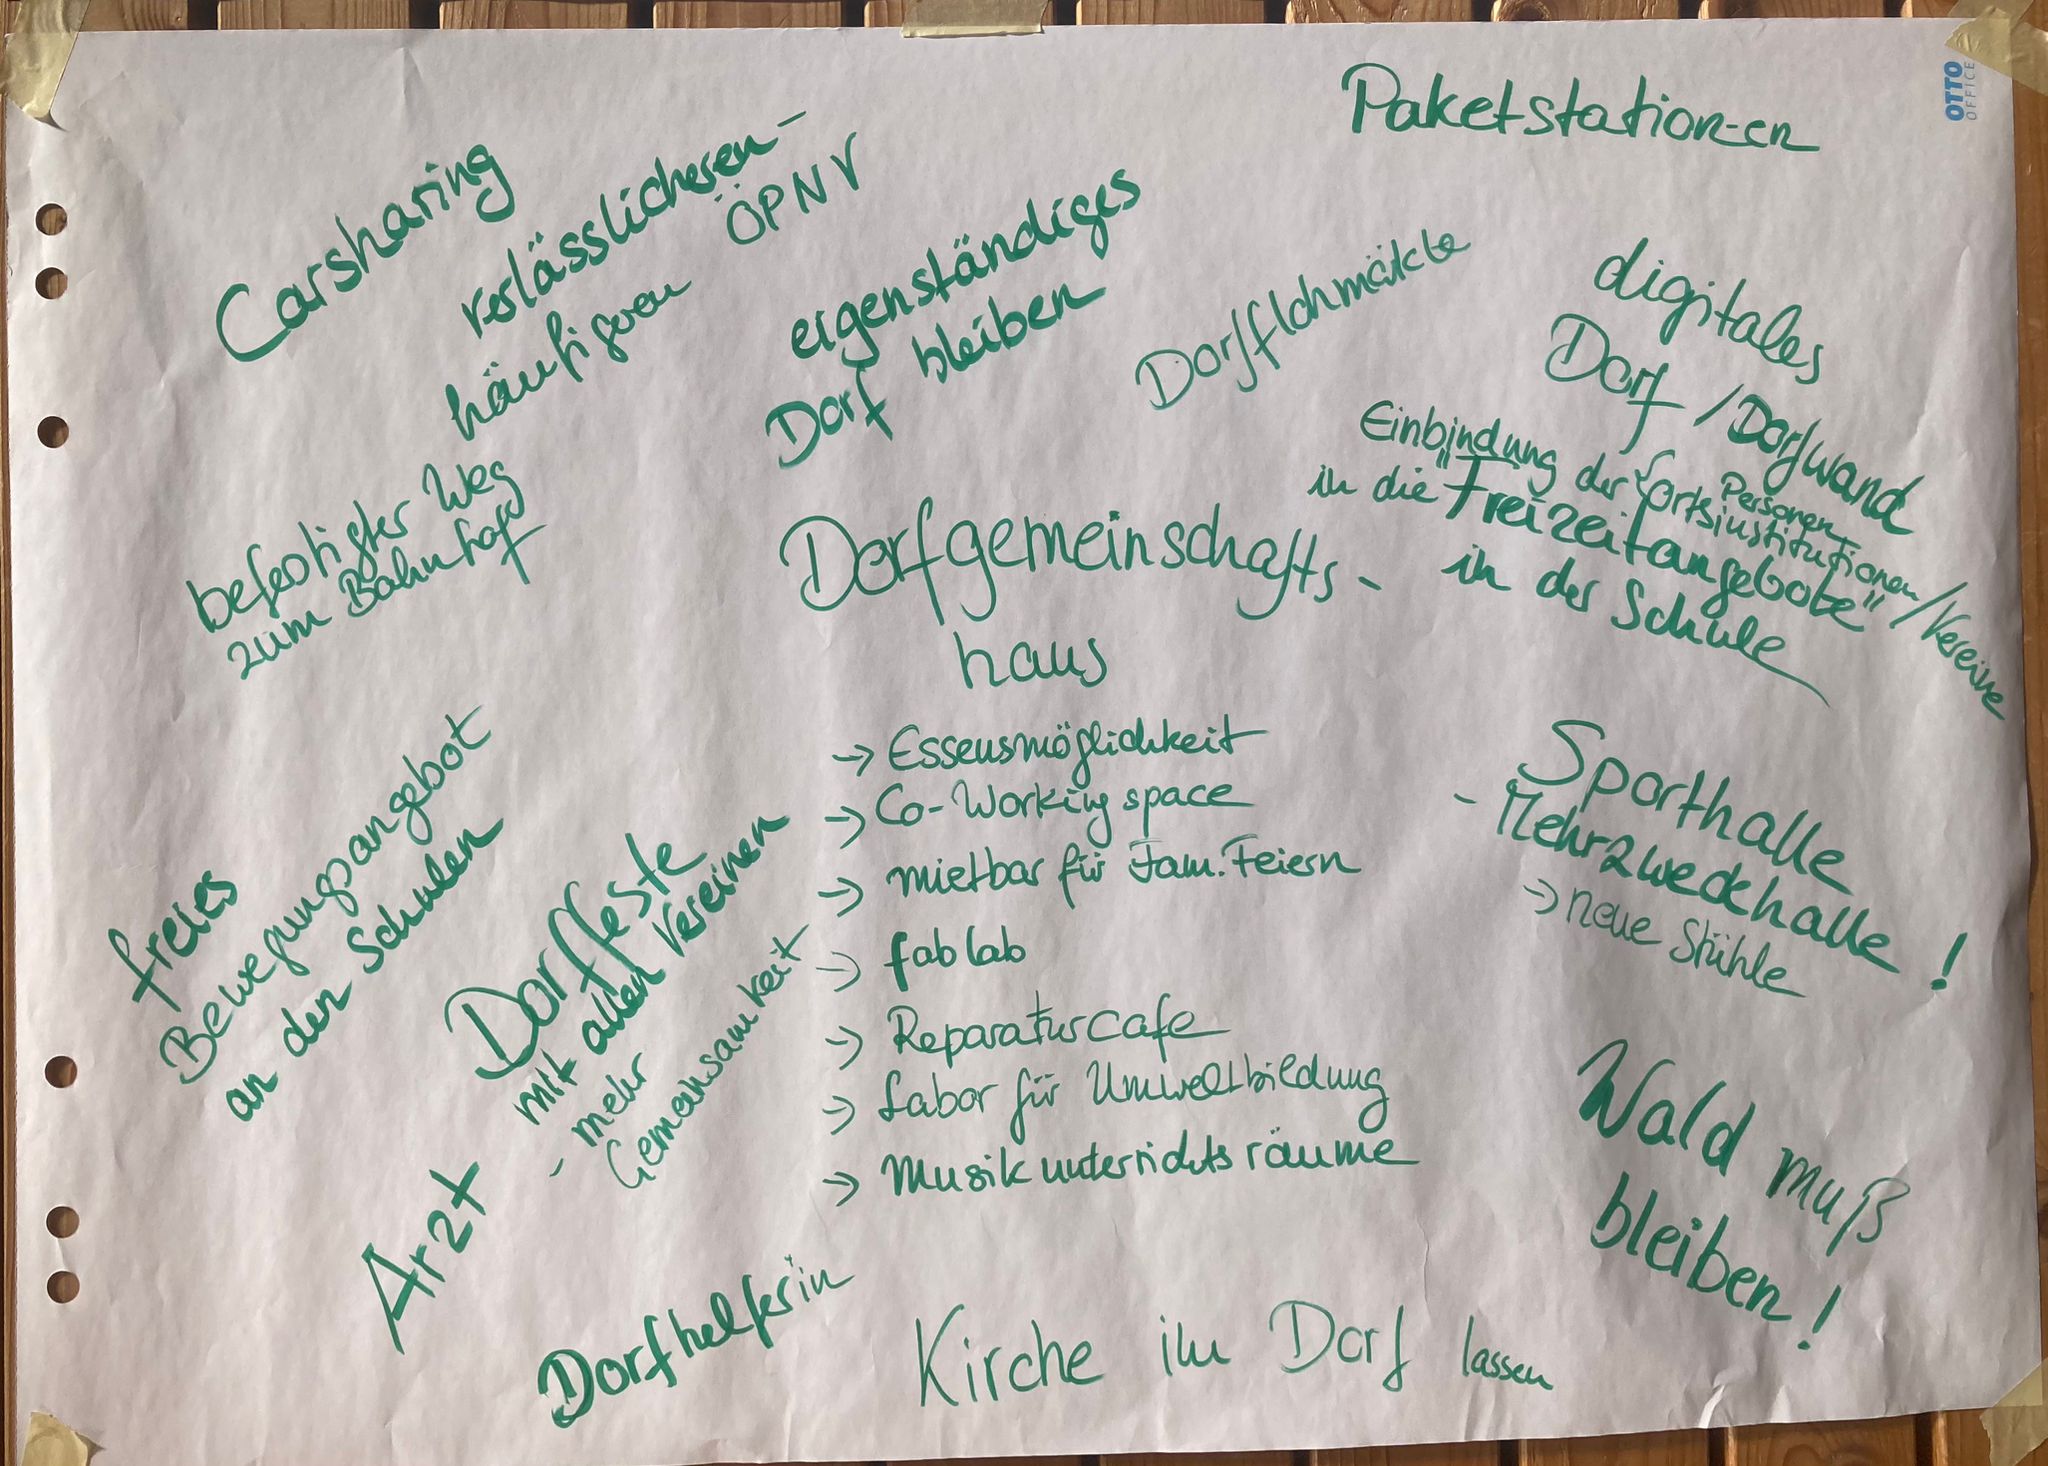 Paketstationen
OTTO
OFFICE
Carsharing
verlässlicheren -
ÖPNV
häufigeren
eigenständiges
Dorf bleiben
Dorfflohmärkte
digitales
Dorf / Dorfwand
Einbindung der Ortsinstitutionen / Vereine
Personen
in die "Freizeitangebote"
in der Schule
befestigter Weg
zum Bahnhof
Dorfgemeinschafts-
haus
→ Essensmöglichkeit
→ Co-Working space
→ mietbar für Fam. Feiern
→ fab lab
→ Reparaturcafe
→ Labor für Umweltbildung
→ Musikunterrichtsräume
Sporthalle
- Mehrzweckhalle !
→ neue Stühle
freies
Bewegungsangebot
an den Schulen
Dorffeste
mit allen Vereinen
- mehr
Gemeinsamkeit
Wald muß
bleiben!
Arzt
Dorfhelferin
Kirche im Dorf lassen